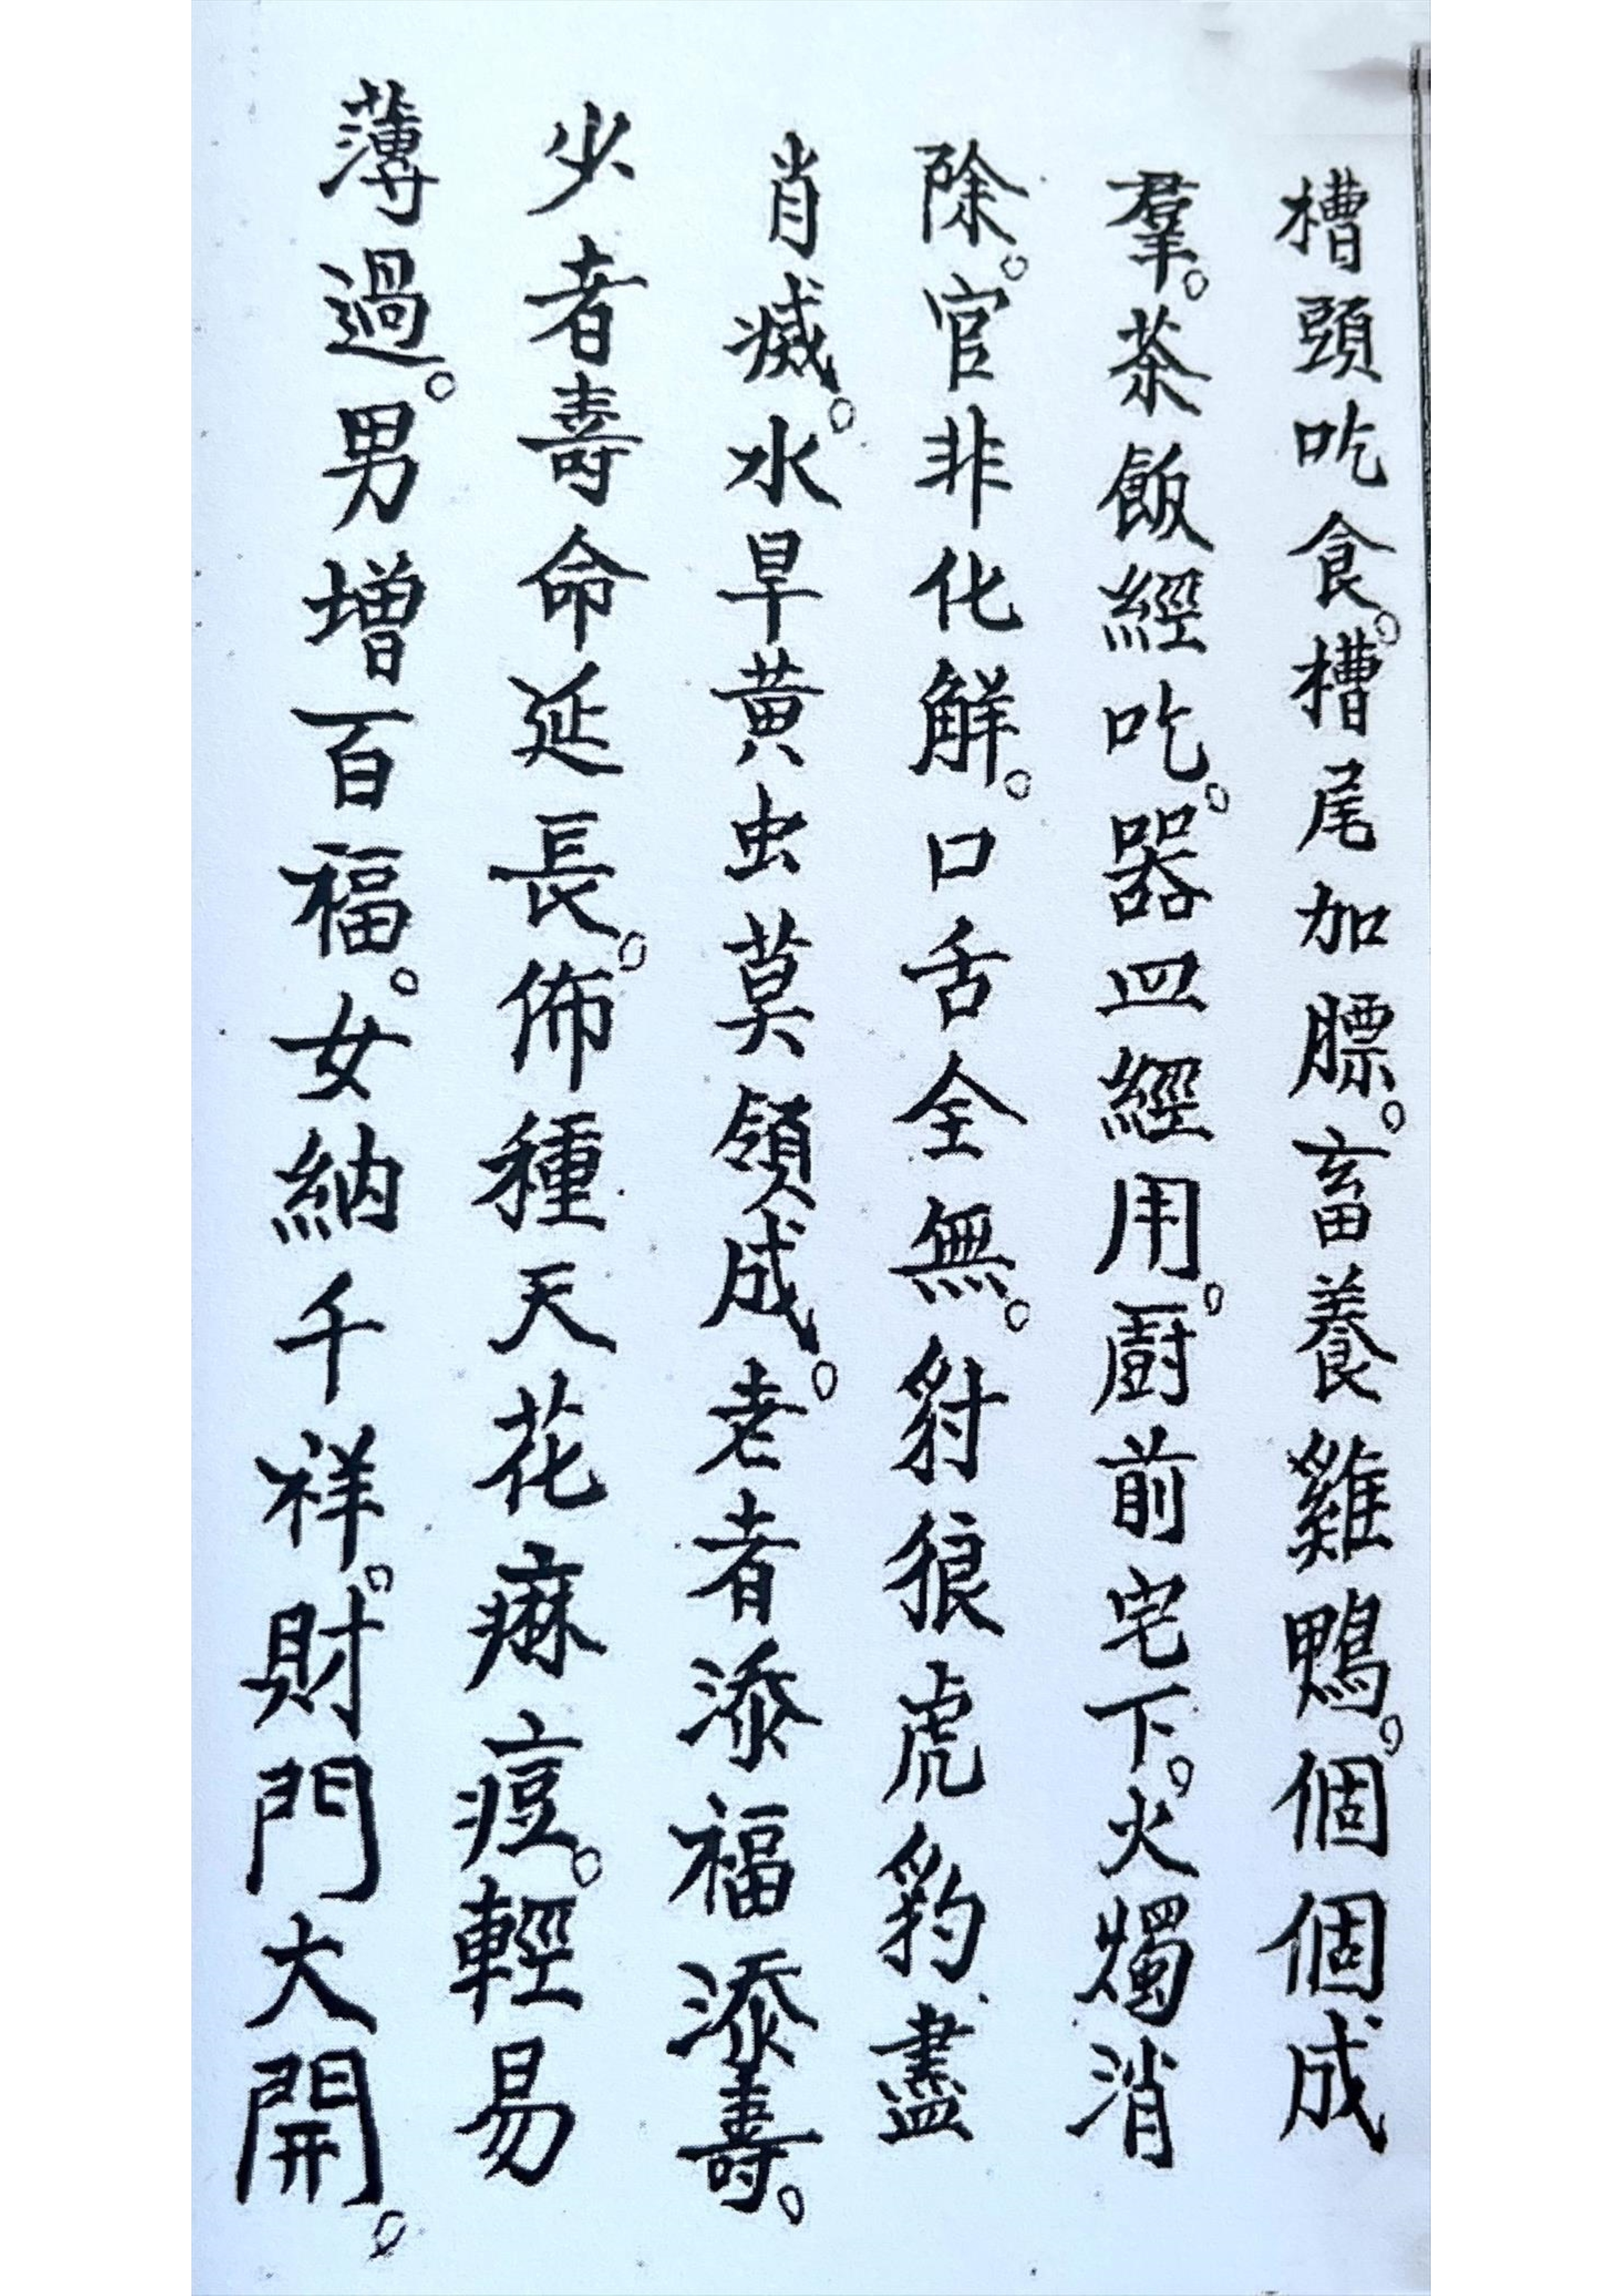 槽頭吃食。槽尾加膘。畜養雞鴨。個個成
羣。茶飯經吃。器皿經用。厨前宅下。火燭消
除。官非化解。口舌全無。豺狼虎豹盡
肖滅。水旱黄虫莫領成。老者添福添壽。
少者壽命延長。佈種天花痳痘。輕易
薄過。男增百福。女納千祥。財門大開。